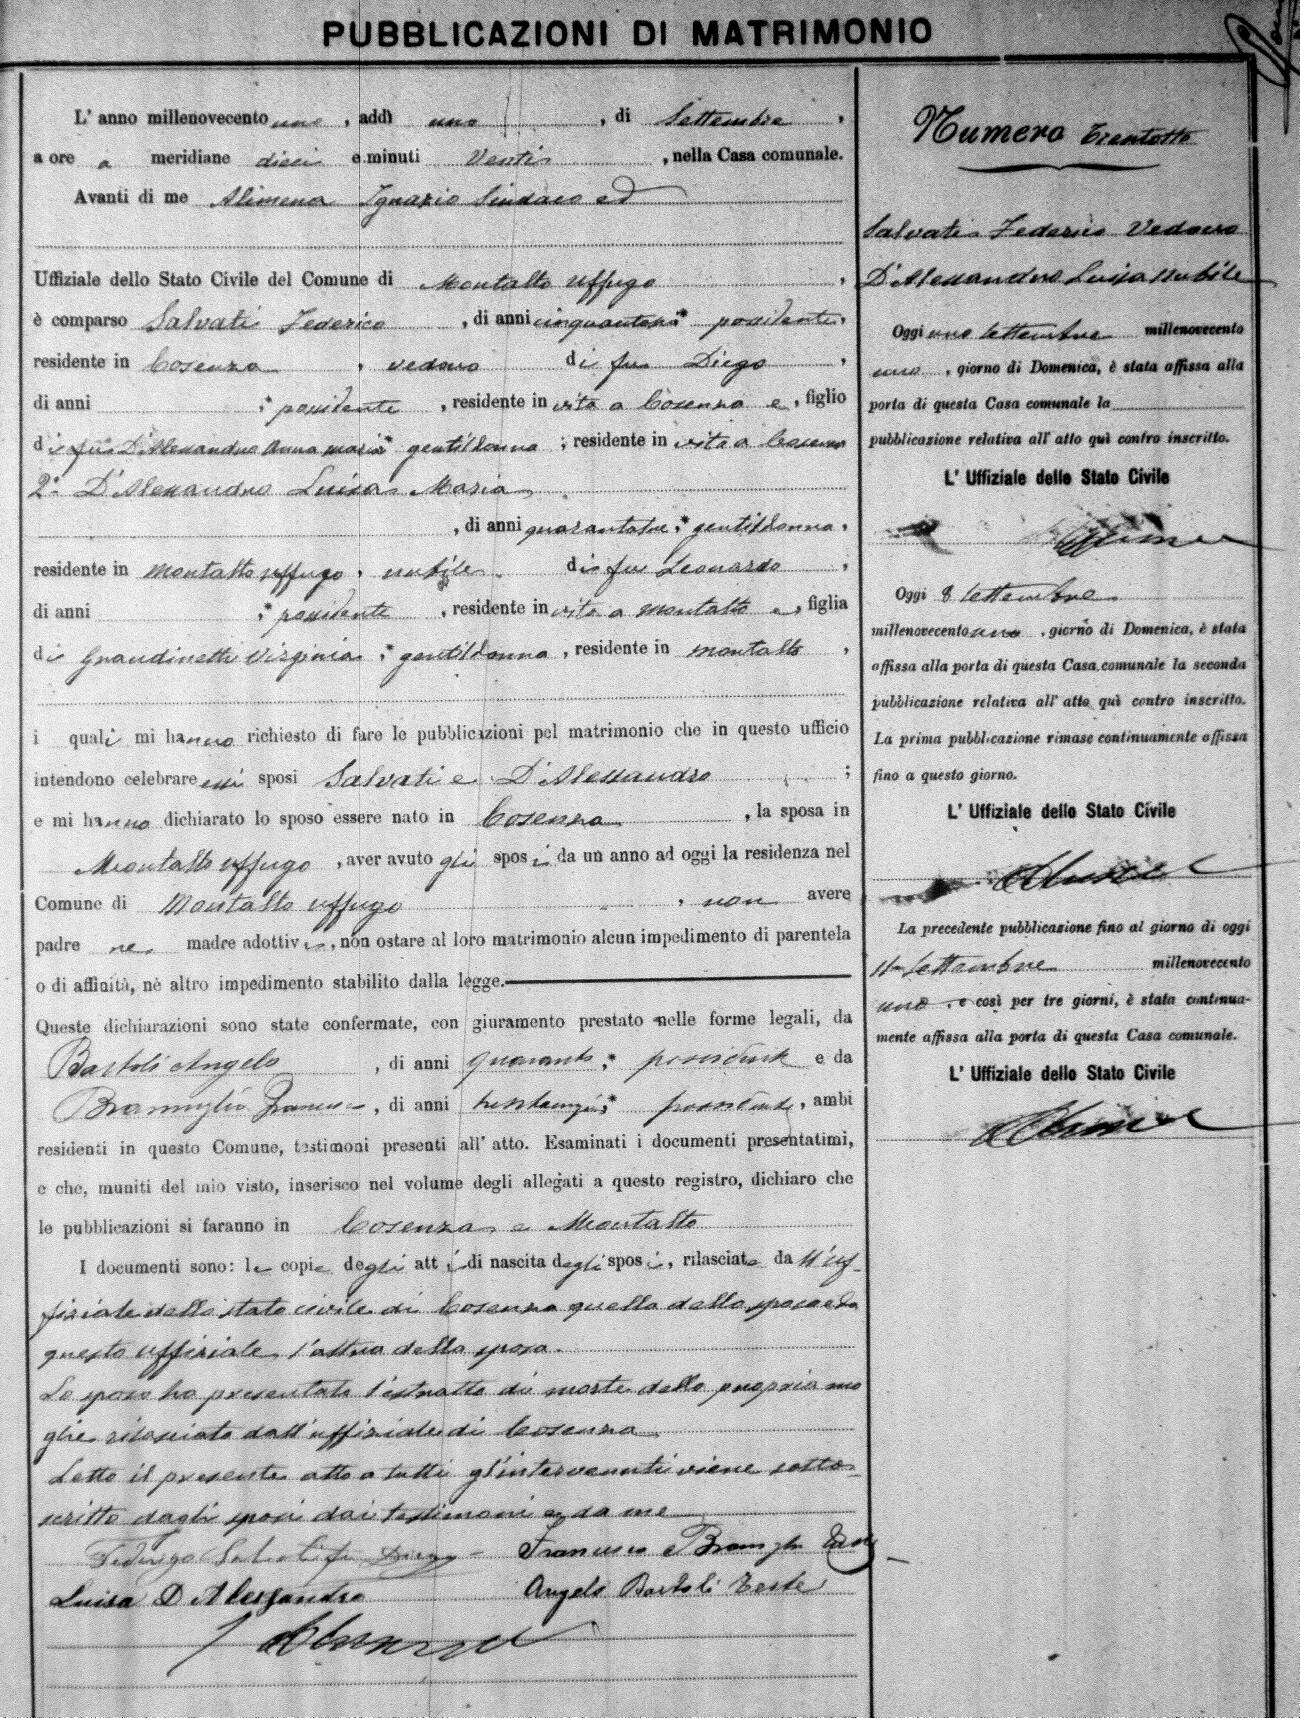 PUBBLICAZIONI DI MATRIMONIO
L' anno millenovecento uno, addì uno, di Settembre,
a ore a meridiane dieci e minuti Venti, nella Casa comunale.
Avanti di me Alimena Ignazio Sindaco ed
Uffiziale dello Stato Civile del Comune di Montalto Uffugo,
è comparso Salvati Federico, di anni possidente,
residente in Cosenza, vedovo di fu Diego,
di anni ; possidente, residente in vita a Cosenza e, figlio
di fu D'Alessandro Anna Maria gentildonna; residente in vita a Cosenza
2° D'Alessandro Luisa Maria
, di anni quarantatre; gentildonna,
residente in Montalto Uffugo, nubile di fu Leonardo,
di anni ; possidente, residente in vita a Montalto e, figlia
di Grandinetti Virginia; gentildonna, residente in Montalto,
i quali mi hanno richiesto di fare le pubblicazioni pel matrimonio che in questo ufficio
intendono celebrare essi sposi Salvati e D'Alessandro;
e mi hanno dichiarato lo sposo essere nato in Cosenza, la sposa in
Montalto Uffugo, aver avuto gli sposi da un anno ad oggi la residenza nel
Comune di Montalto Uffugo, non avere
padre ne madre adottivi, non ostare al loro matrimonio alcun impedimento di parentela
o di affinità, nè altro impedimento stabilito dalla legge.
Queste dichiarazioni sono state confermate, con giuramento prestato nelle forme legali, da
Bartoli Angelo, di anni quaranta; possidente e da
Francesco, di anni possidente, ambi
residenti in questo Comune, testimoni presenti all' atto. Esaminati i documenti presentatimi,
e che, muniti del mio visto, inserisco nel volume degli allegati a questo registro, dichiaro che
le pubblicazioni si faranno in Cosenza e Montalto
I documenti sono: le copie degli atti di nascita degli sposi, rilasciate da ll'uf-
fiziale dello stato civile di Cosenza quella dello sposo e da
questo uffiziale l'altra della sposa.
Lo sposo ha presentato l'estratto di morte della propria mo
glie rilasciato dall'uffiziale di Cosenza
Letto il presente atto a tutti gl'intervenuti viene sotto-
scritto dagli sposi dai testimoni e da me
Federigo Salvati fu Diego - Francesco
Luisa D'Alessandro Angelo Bartoli Teste
Numero Trentotto
Salvati Federico Vedovo
D'Alessandro Luisa nubile
Oggi uno Settembre millenovecento
uno, giorno di Domenica, è stata affissa alla
porta di questa Casa comunale la
pubblicazione relativa all' atto quì contro inscritto.
L' Uffiziale dello Stato Civile
Oggi 8 Settembre
millenovecento uno, giorno di Domenica, è stata
affissa alla porta di questa Casa comunale la seconda
pubblicazione relativa all' atto quì contro inscritto.
La prima pubblicazione rimase continuamente affissa
fino a questo giorno.
L' Uffiziale dello Stato Civile
La precedente pubblicazione fino al giorno di oggi
11 Settembre millenovecento
uno, e così per tre giorni, è stata continua-
mente affissa alla porta di questa Casa comunale.
L' Uffiziale dello Stato Civile